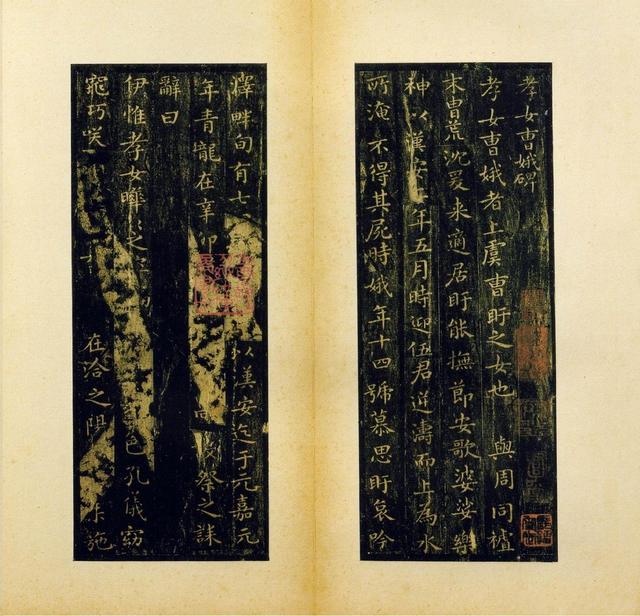 孝女曹娥碑
孝女曹娥者上虞曹盱之女也 與周同櫨
末胄荒沈爰来適居盱能撫節安歌婆娑樂
神以漢安二年五月時迎伍君逆濤而上為水
所淹不得其屍時娥年十四號慕思盱哀吟
澤畔旬有七 以漢安迄于元嘉元
年青龍在辛卯 祭之誄
辭曰
伊惟孝女曄之 色孔儀窈
窕巧咲 在洽之陽 施